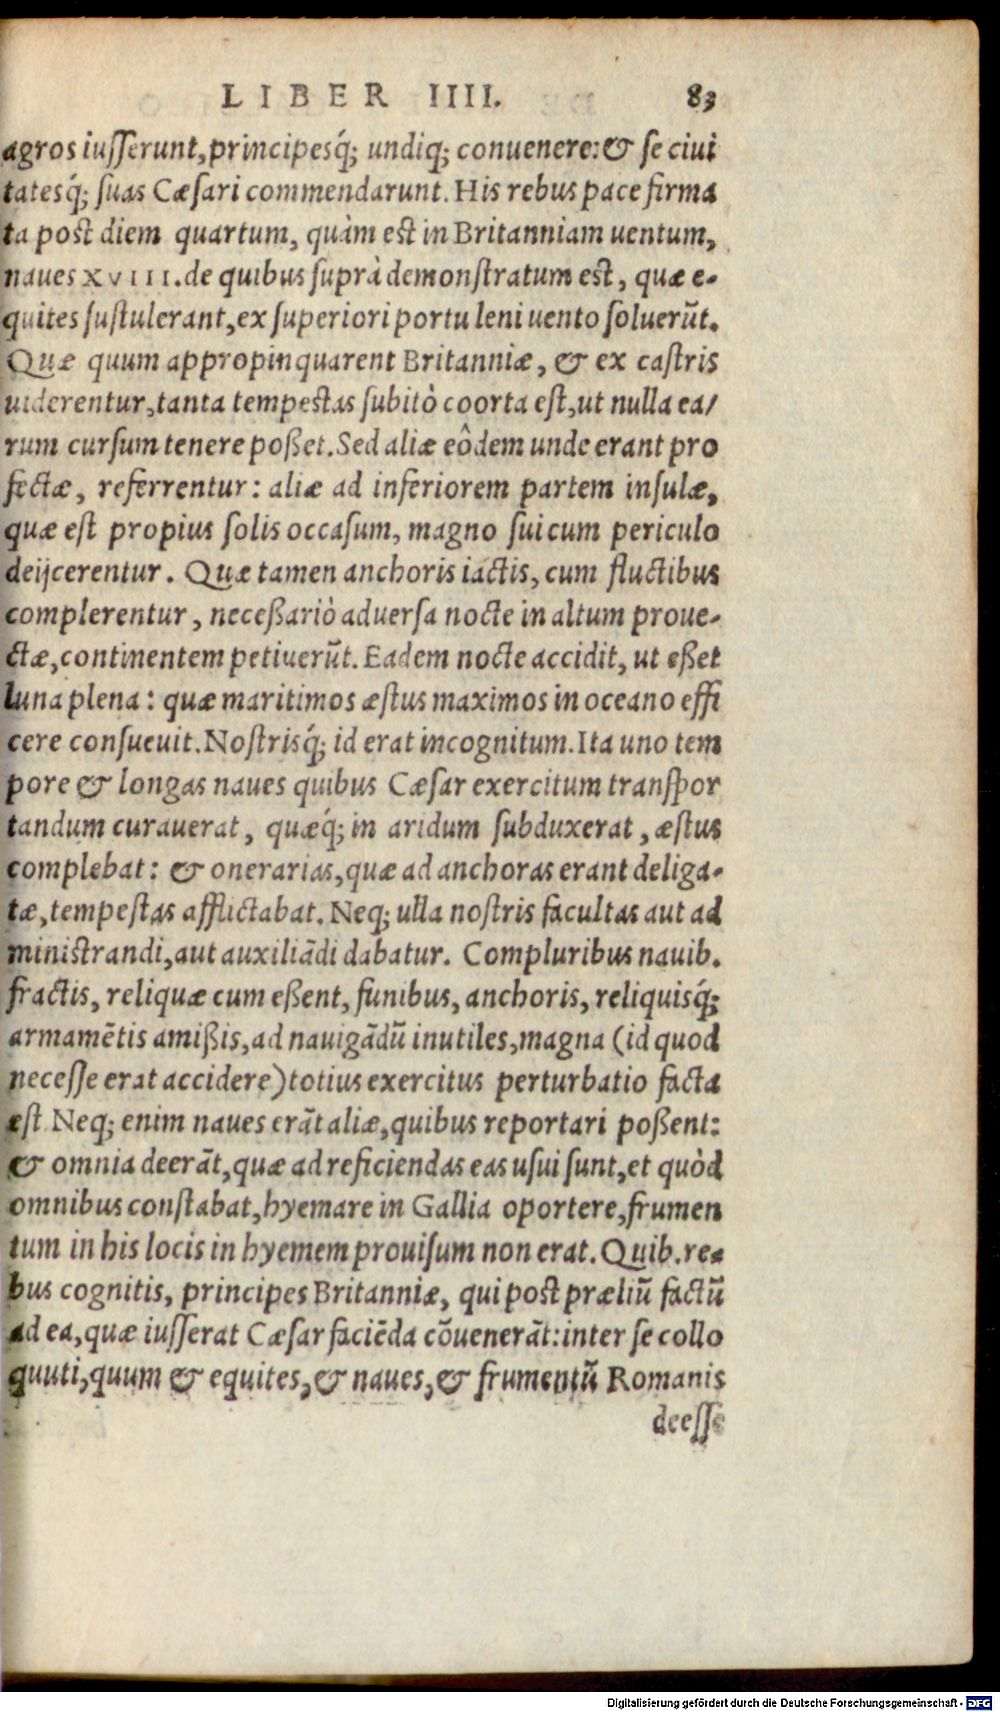 LIBER IIII. 83
agros iuſſerunt, principesq́; undiq; conuenere: & ſe ciui
tatesq́; ſuas Cæſari commendarunt. His rebus pace firma
ta post diem quartum, quàm est in Britanniam uentum,
naues XVIII. de quibus ſuprà demonſtratum est, quæ e-
quites ſuſtulerant, ex ſuperiori portu leni uento ſoluerūt.
Quæ quum appropinquarent Britanniæ, & ex caſtris
uiderentur, tanta tempestas ſubitò coorta eſt, ut nulla ea/
rum curſum tenere poßet. Sed aliæ eôdem unde erant pro
fectæ, referrentur: aliæ ad inferiorem partem inſulæ,
quæ eſt propius ſolis occaſum, magno ſui cum periculo
deijcerentur. Quæ tamen anchoris iactis, cum fluctibus
complerentur, neceßariò aduerſa nocte in altum proue-
ctæ, continentem petiuerūt. Eadem nocte accidit, ut eßet
luna plena: quæ maritimos æstus maximos in oceano effi
cere conſueuit. Noſtrisq́; id erat incognitum. Ita uno tem
pore & longas naues quibus Cæſar exercitum tranſpor
tandum curauerat, quæq́; in aridum ſubduxerat, æstus
complebat: & onerarias, quæ ad anchoras erant deliga-
tæ, tempeſtas afflictabat. Neq; ulla noſtris facultas aut ad
miniſtrandi, aut auxiliādi dabatur. Compluribus nauib.
fractis, reliquæ cum eßent, funibus, anchoris, reliquisq́;
armamētis amißis, ad nauigādū inutiles, magna (id quod
neceſſe erat accidere) totius exercitus perturbatio facta
eſt. Neq; enim naues erāt aliæ, quibus reportari poßent:
& omnia deerāt, quæ ad reficiendas eas uſui ſunt, et quòd
omnibus conſtabat, hyemare in Gallia oportere, frumen
tum in his locis in hyemem prouiſum non erat. Quib. re-
bus cognitis, principes Britanniæ, qui post præliū factū
ad ea, quæ iuſſerat Cæſar faciēda cōuenerāt: inter ſe collo
quuti, quum & equites, & naues, & frumentū Romanis
deeſſe
Digitalisierung gefördert durch die Deutsche Forschungsgemeinschaft - DFG